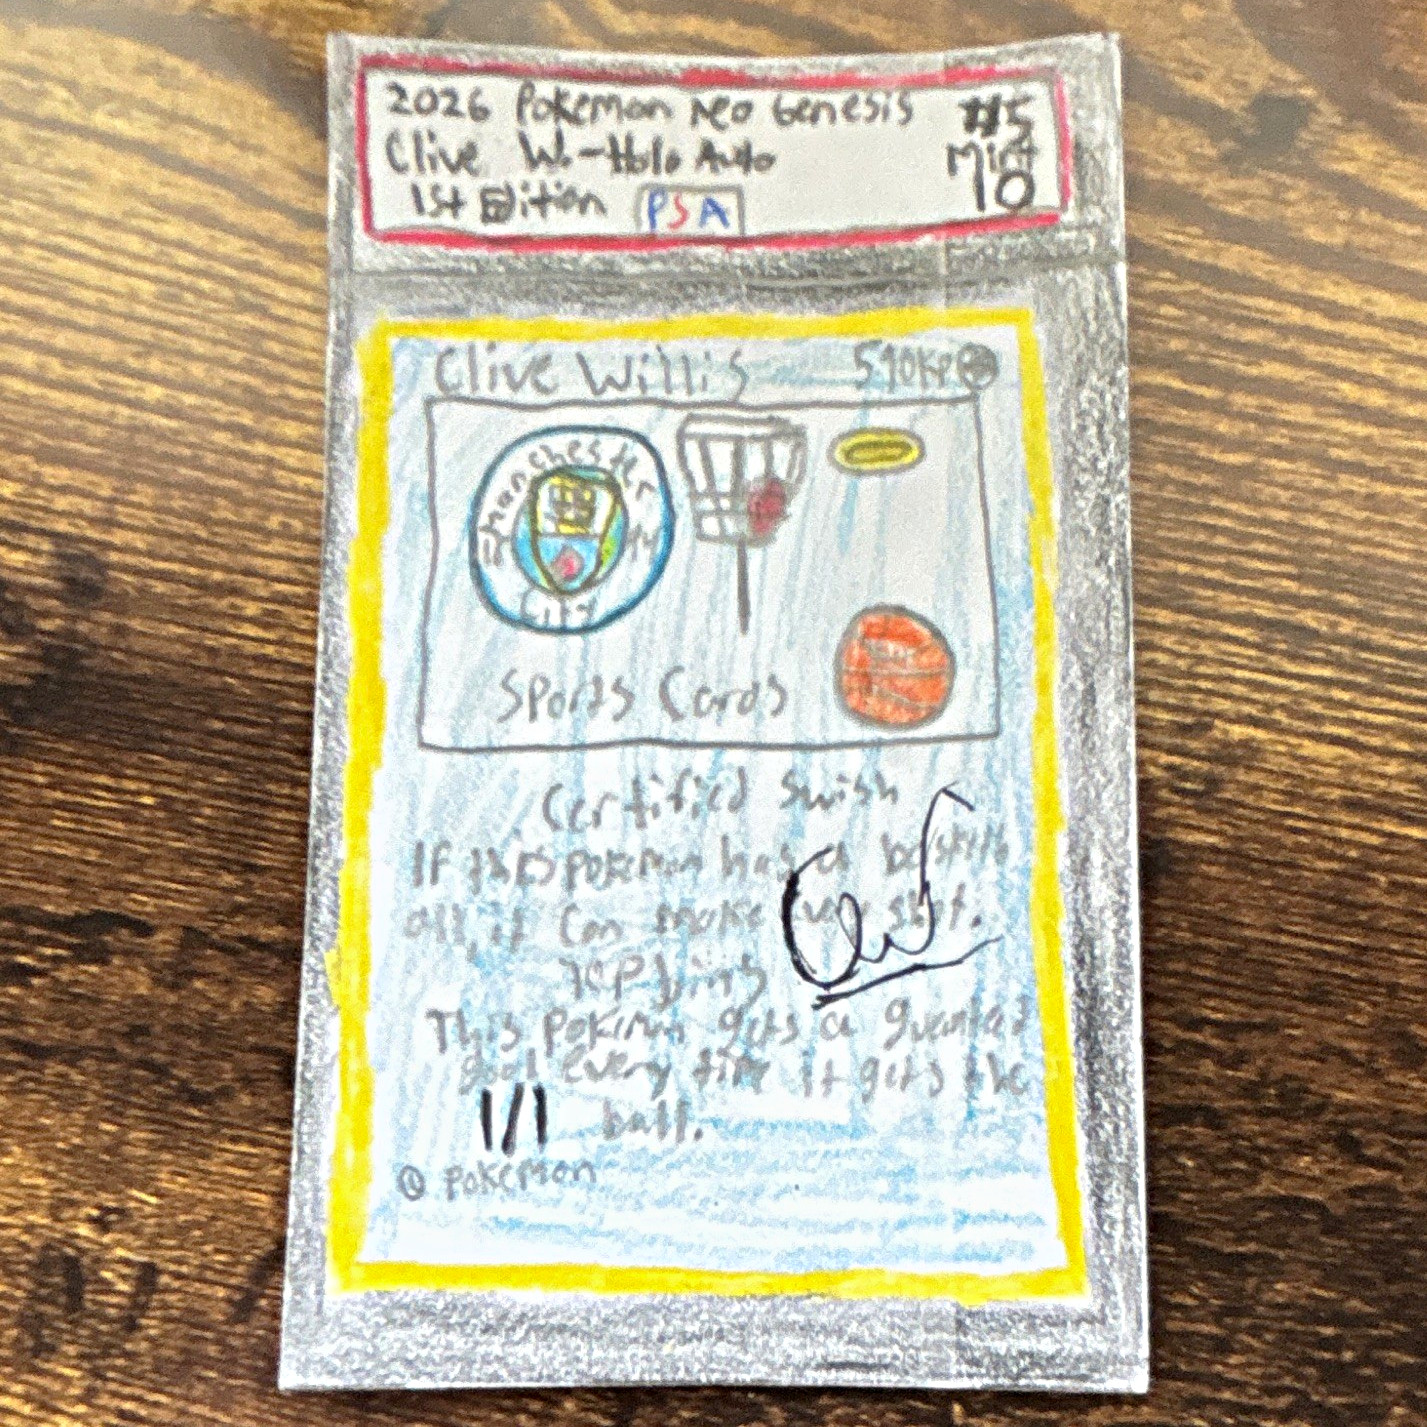 2026 Pokemon Neo Genesis #5
Clive W.-Holo Auto Mint
1st Edition PSA 10
Clive Willis 510HP
Manchester
City
Sports Cards
Certified Swish
If this pokemon has a basketb
all, it can make every shot.
Top bins
This pokemon gets a guranteed
goal every time it gets the
1/1 ball.
© pokemon